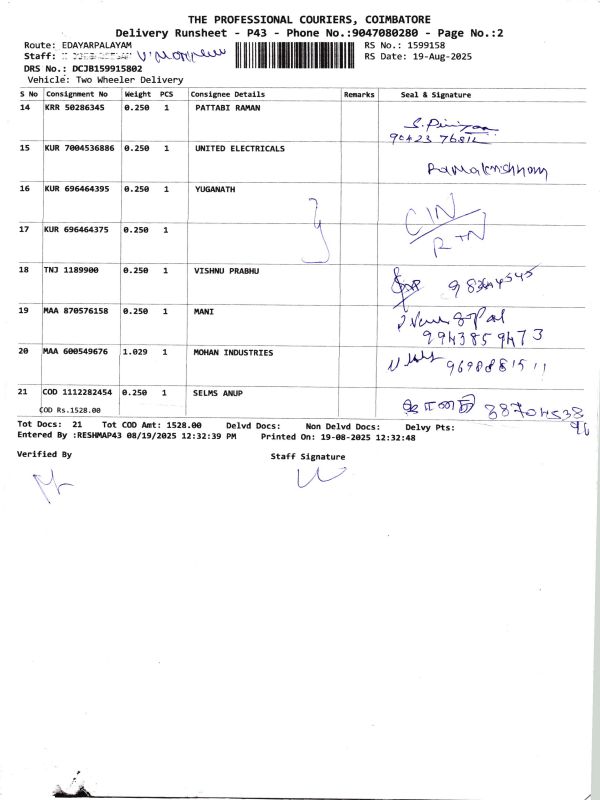 THE PROFESSIONAL COURIERS, COIMBATORE
Delivery Runsheet - P43 - Phone No.:9047080280 - Page No.:2
Route: EDAYARPALAYAM RS No.: 1599158
Staff: RS Date: 19-Aug-2025
DRS No.: DCJB159915802
Vehicle: Two Wheeler Delivery
S No Consignment No Weight PCS Consignee Details Remarks Seal & Signature
14 KRR 50286345 0.250 1 PATTABI RAMAN
15 KUR 7004536886 0.250 1 UNITED ELECTRICALS
Ramakrishnan
16 KUR 696464395 0.250 1 YUGANATH
17 KUR 696464375 0.250 1
18 TNJ 1189900 0.250 1 VISHNU PRABHU
19 MAA 870576158 0.250 1 MANI
9943859473
20 MAA 600549676 1.029 1 MOHAN INDUSTRIES
9698881511
21 COD 1112282454 0.250 1 SELMS ANUP
COD Rs.1528.00
Tot Docs: 21 Tot COD Amt: 1528.00 Delvd Docs: Non Delvd Docs: Delvy Pts:
Entered By :RESHMAP43 08/19/2025 12:32:39 PM Printed On: 19-08-2025 12:32:48
Verified By Staff Signature